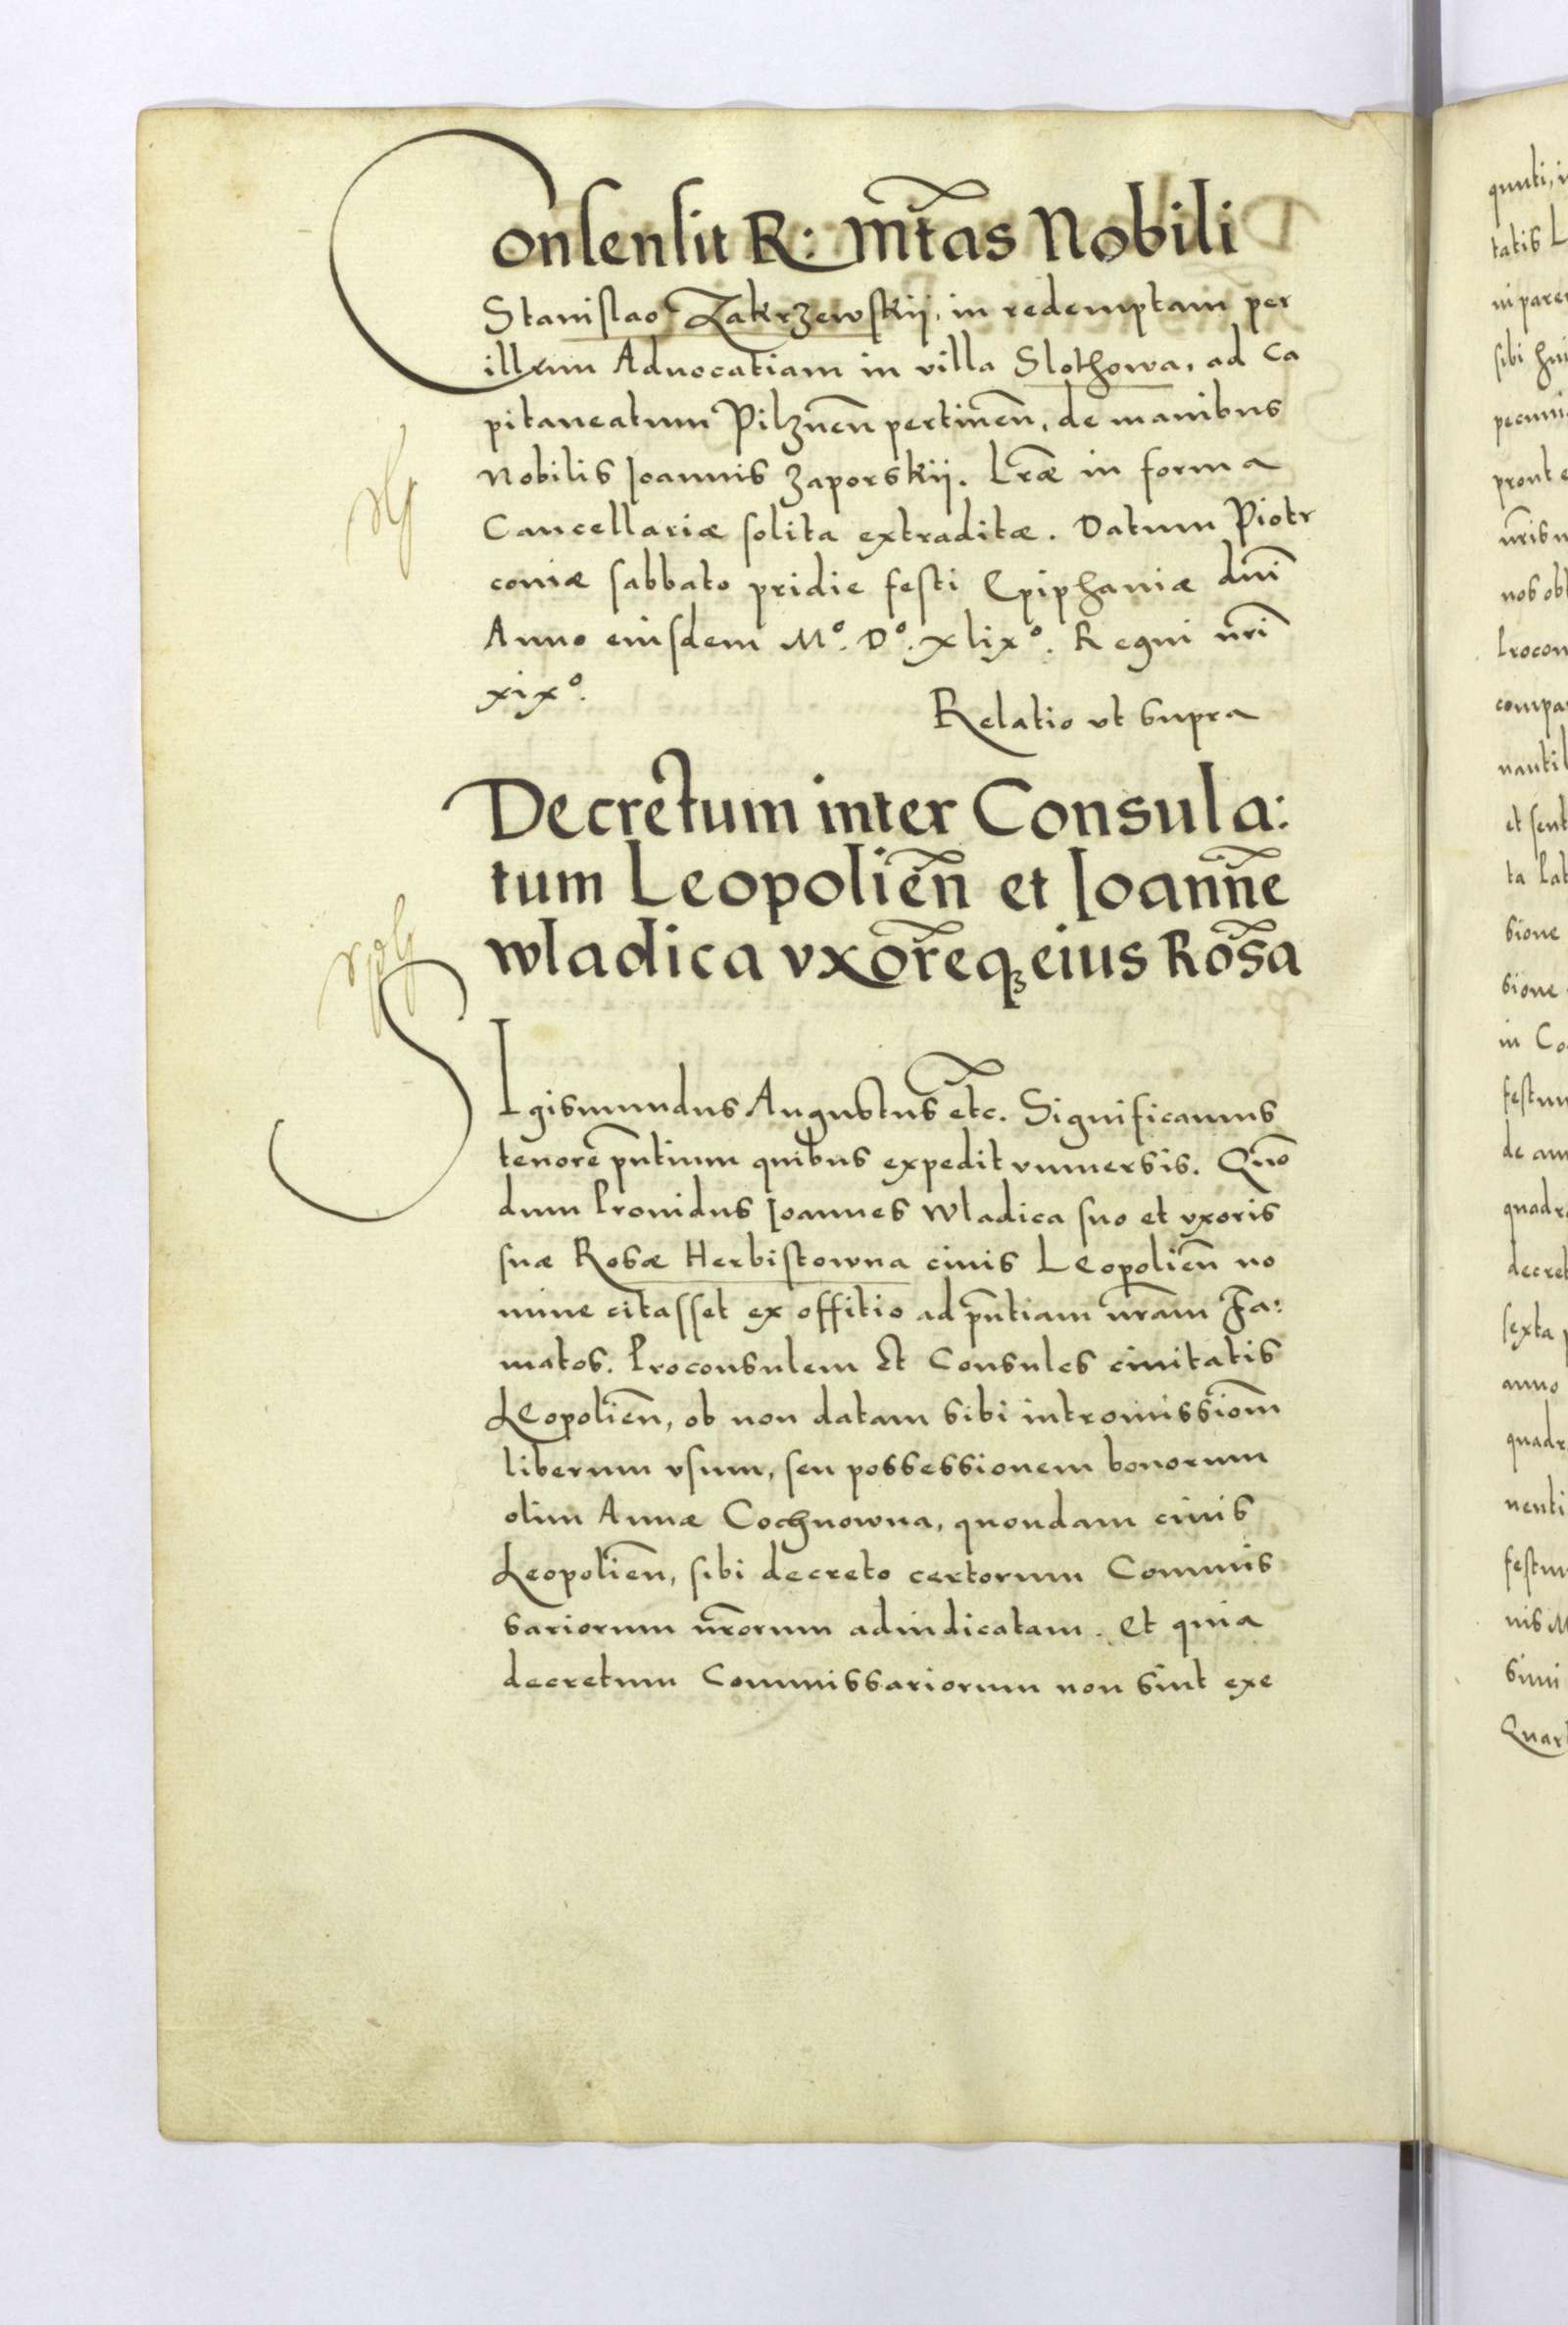 Consensit R: Mt̃as Nobili
Stanislao Zakrzewskij, in redemptam per
illum Aduocatiam in villa Slothowa, ad Ca
pitaneatum Pilznen̄ pertinen̄, de manibus
Nobilis Joannis Zaporskij. Lr̃æ in forma
Cancellariæ solita extraditæ. Datum Piotr
coniæ sabbato pridie festi Epiphaniæ dnī
Anno eiusdem Mº. Dº. xlixº. Regni nr̄i
xixº.
Relatio vt supra
Decretum inter Consula:
tum Leopolien̄ et Joann̄e
wladica vxor̄eqꝫ eius Ros̄a
SIgismundus Augustus etc̃. Significamus
tenore p̄ntium quibus expedit vniuersis. Quō
dum Prouidus Joannes Wladica suo et vxoris
suæ Rosæ Herbistowna ciuis Leopolien̄ no
mine citasset ex offitio ad p̄ntiam nr̄am Fa:
matos. Proconsulem Et Consules ciuitatis
Leopolien̄, ob non datam sibi intromissiom̄
liberum vsum, seu possessionem bonorum
olim Annæ Cochnowna, quondam ciuis
Leopolien̄, sibi decreto certorum Commis
sariorum nr̄orum adiudicatam. Et quia
decretum Commissariorum non sint exe
quuti, i
tatis L
ni pare
sibi hui
pecuni
prout e
nr̄is n
nos obl
Procon
compa
nanti
et sent
ta Lat
sione
sione
in Co
festum
de an
quadr
decret
sexta p
anno
quadr
nenti
festum
nis M
simi
Quar